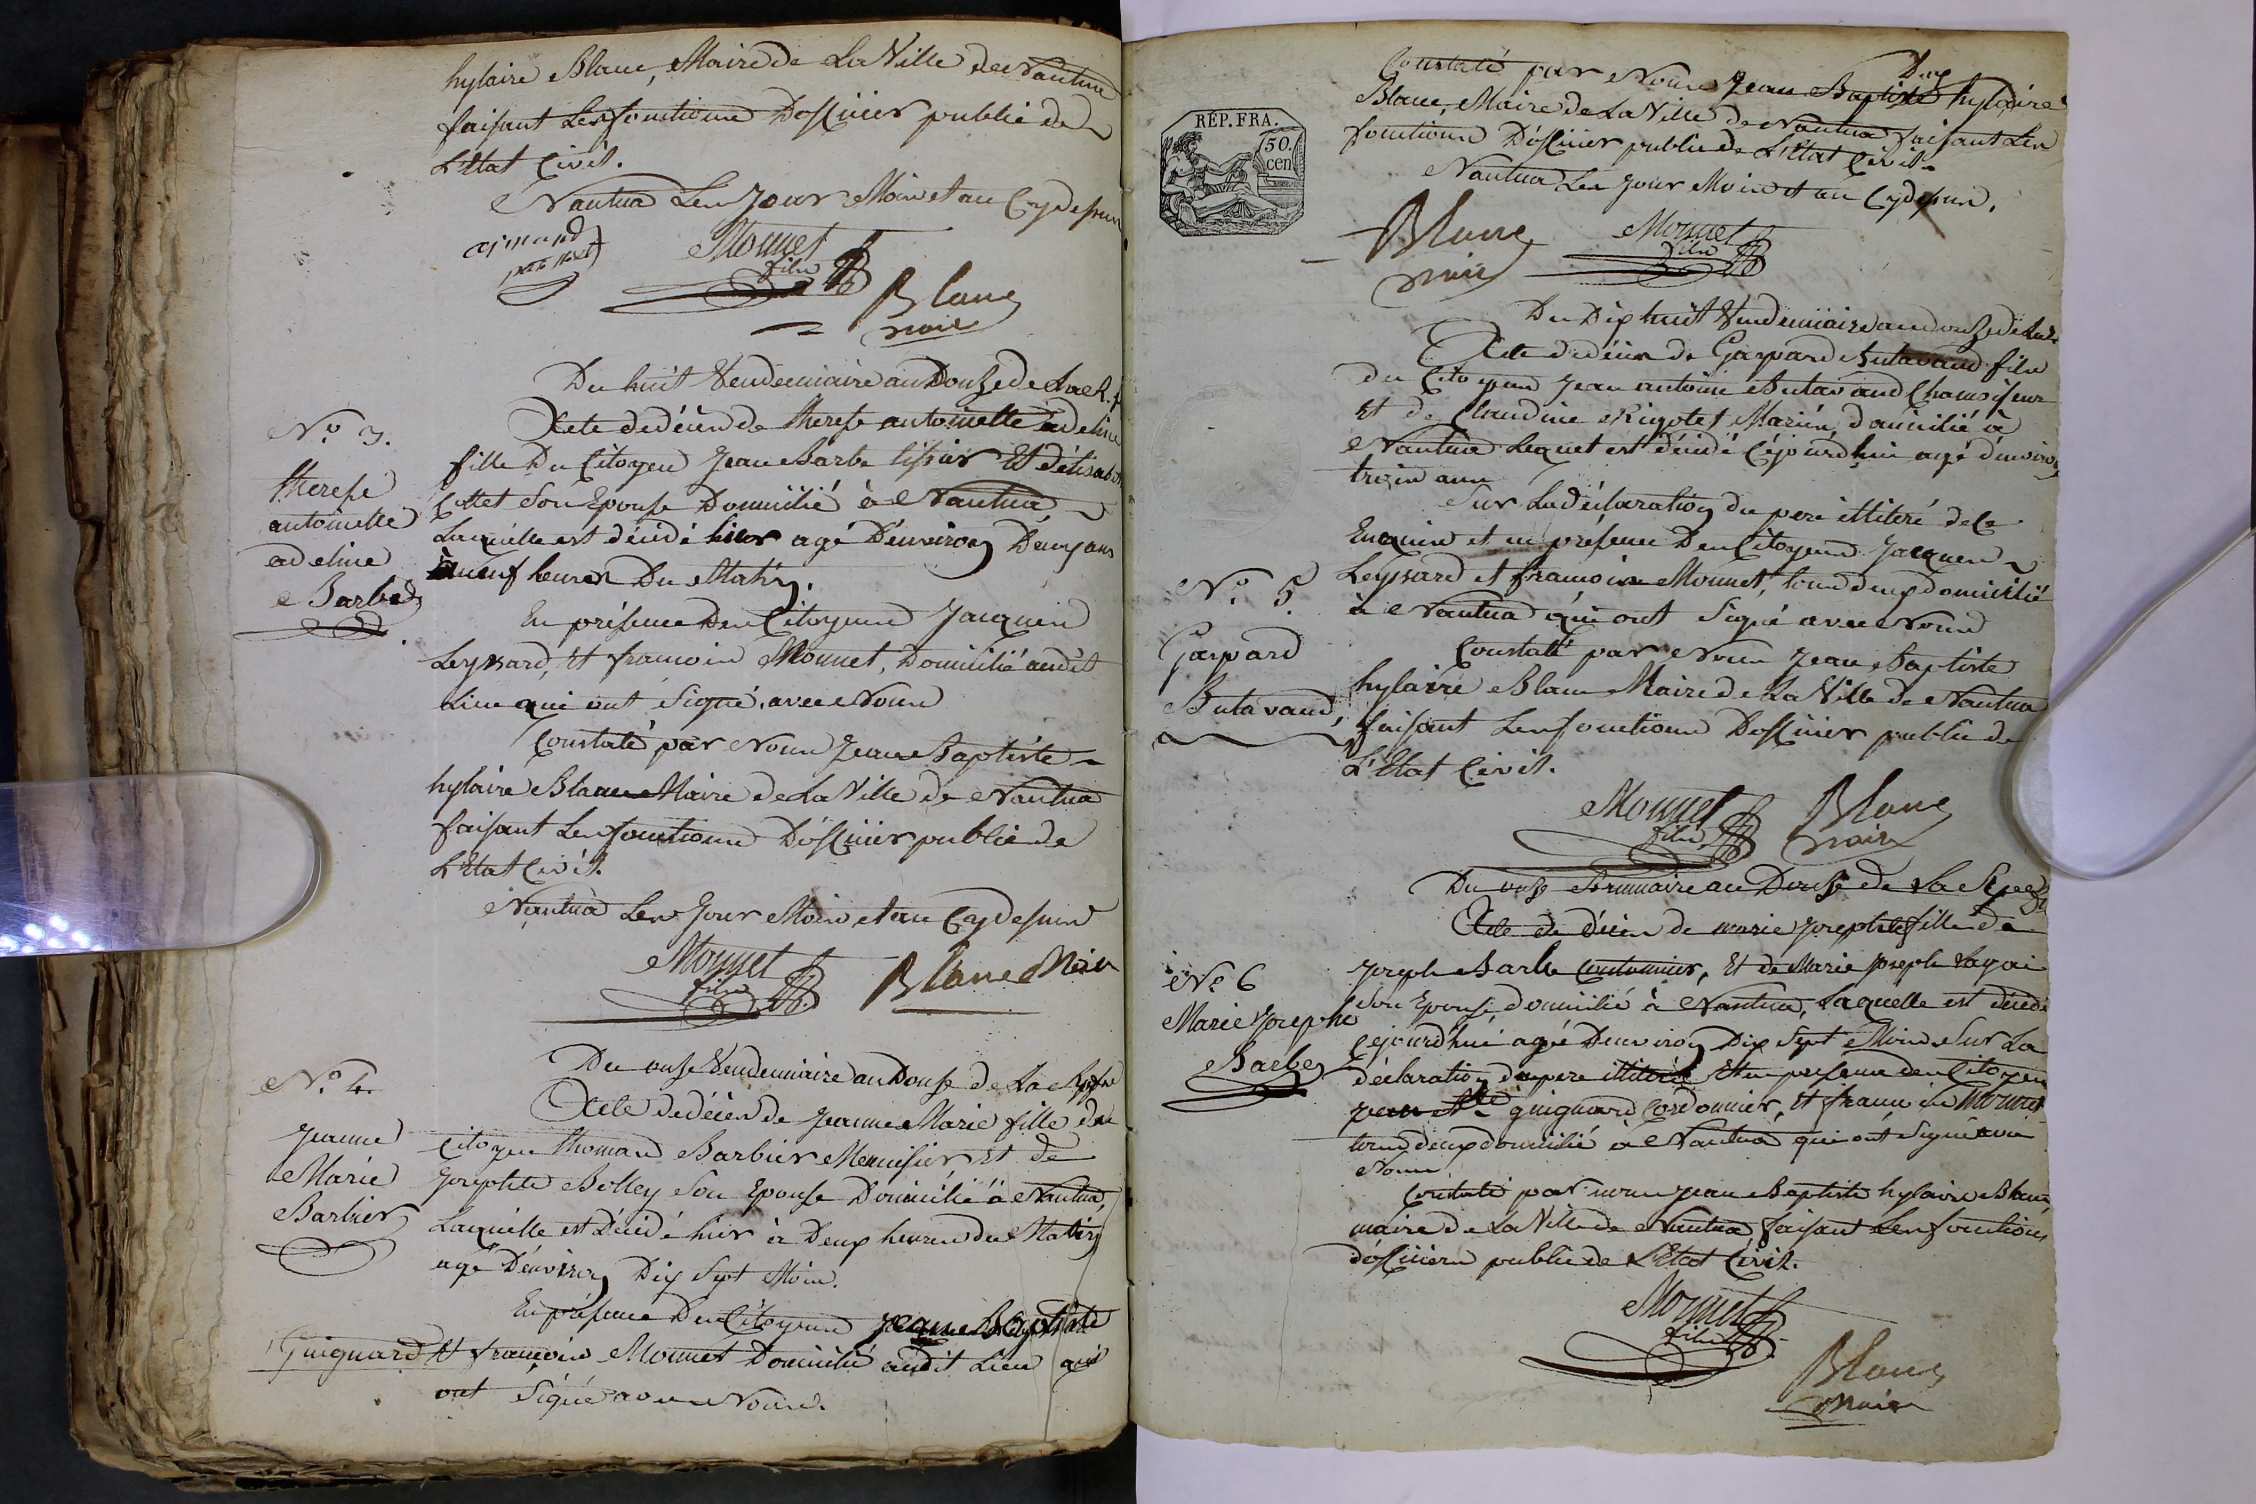 hylaire Blanc, Maire de La Ville de Nantua
faisant Les fonctions D'officier public de
L'Etat Civil.
Nantua Les Jour Mois et an Cydessus
Monnet
fils
Blanc
maire
Du huit Vendemiaire an Douze de La R. f
Acte de décès de therese antoinette adeline
fille Du Citoyen Jean Barbe tissier Et d'elisabeth
Cottet Son Epouse Domicilié à Nantua
Laquelle est décédé hier agé D'environ Deux ans
à neuf heures Du Matin.
En présence Des Citoyens Jacques
Leyssard, Et françois Monnet, Domicilié audit
Lieu qui ont Signé avec Nous
Constaté par Nous Jean Baptiste
hylaire Blanc Maire de La Ville de Nantua
faisant Les fonctions D'officier public de
L'Etat Civil.
Nantua Les Jour Mois et an Cy dessus
Monnet
fils
Blanc Maire
N.º 3.
therese
antoinette
adeline
Barbe
Du onze Vendemiaire an Douze de La Repque
Acte de décès de Jeanne Marie fille du
Citoyen thomas Barbier Menuisier Et de
Josephte Bolley Son Epouse Domicilié à Nantua
Laquelle est décédé hier à Deux heures du Matin
agé D'environ Dix Sept Mois.
En présence Des Citoyens Jean Baptiste
Guignard Et françois Monnet Domicilié audit Lieu qui
ont Signé avec Nous.
N.º 4.
Jeanne
Marie
Barbier
Constaté par Nous Jean Baptiste hylaire
Blanc, Maire de La Ville de Nantua faisant Les
fonctions D'officier public de L'Etat Civil.
Nantua Les Jour Mois et an Cydessus.
REP. FRA.
50.
cen
Blanc
maire
Monnet
fils
Du Dix huit Vendemiaire an douze de La R.
Acte de décès de Gaspard Butavand fils
du Citoyen Jean antoine Butavand Chamoiseur
Et de Claudine Rigotet Mariés, domicilié à
Nantua Lequel est décédé Cejourd'hui agé d'environ
trois ans
Sur La déclaration du pere illiteré de Ce
Enquis et en présence Des Citoyens Jacques
Leyssard et françois Monnet, tous deux domicilié
à Nantua qui ont Signé avec Nous
Constaté par Nous Jean Baptiste
hylaire Blanc Maire de La Ville de Nantua
faisant Les fonctions D'officier public de
L'Etat Civil.
Monnet
fils
Blanc
maire
N.º 5.
Gaspard
Butavand
Du onze Brumaire an Douze de La Rep
Acte de décès de marie Josephte fille de
Joseph Barbe Coutumier, Et de Marie Joseph
Son Epouse domicilié à Nantua, Laquelle est décédé
Cejourd'hui agé D'environ Dix Sept Mois Sur La
déclaration du pere illiteré Et en présence des Citoyens
Jean Bte guignard Cordonnier, Et françois Monnet
tous deux domicilié à Nantua qui ont Signé avec
Nous
Constaté par nous Jean Baptiste hylaire Blanc
maire de La Ville de Nantua faisant Les fonctions
d'officiers public de L'Etat Civil.
Monnet
fils
Blanc
maire
N.º 6
Marie Josephe
Barbe